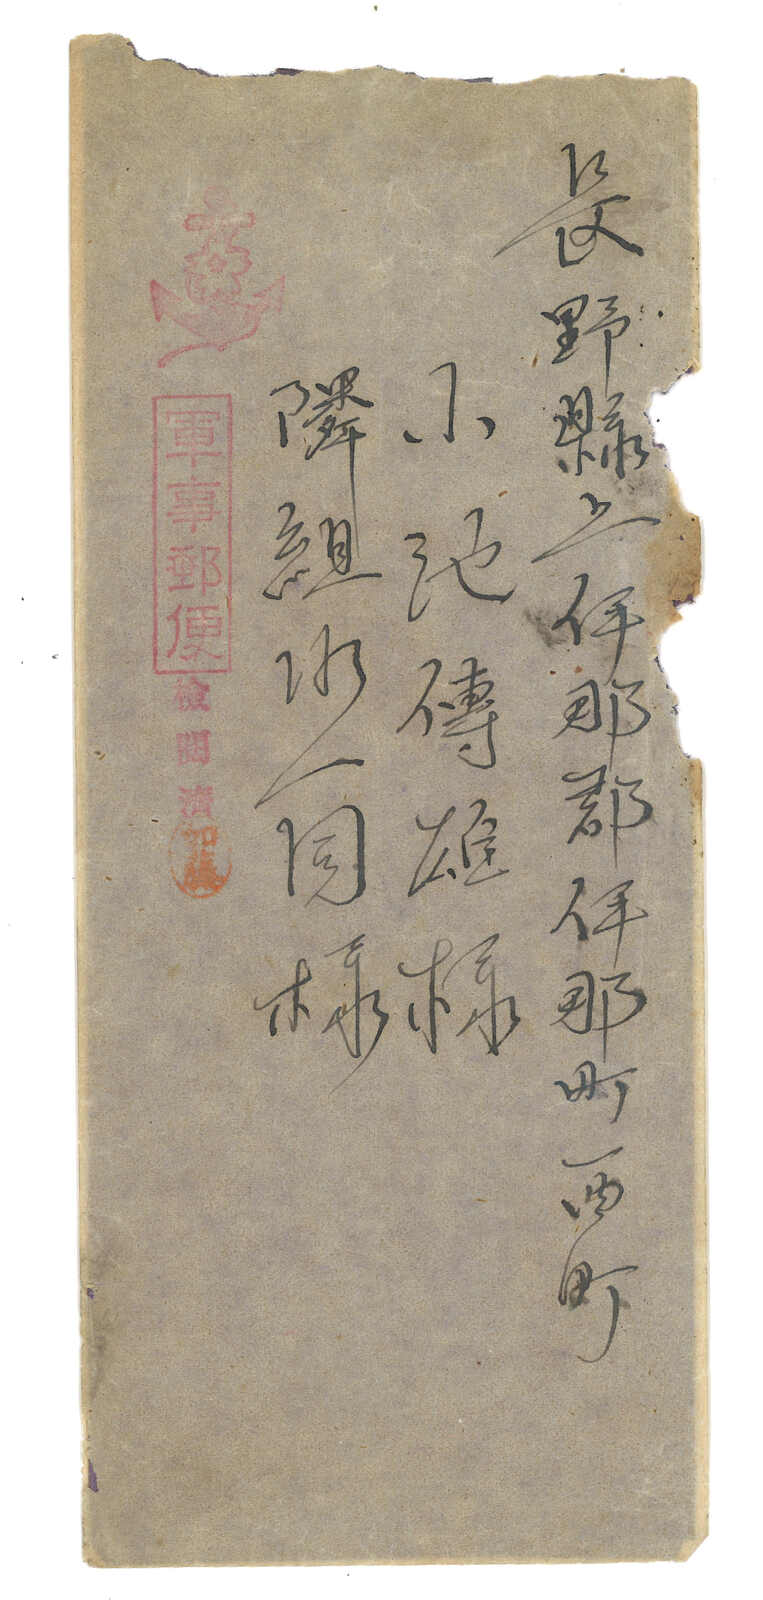 長野縣上伊那郡伊那町西町
小池傳雄様
隣組御一同様
軍事郵便
検閲済